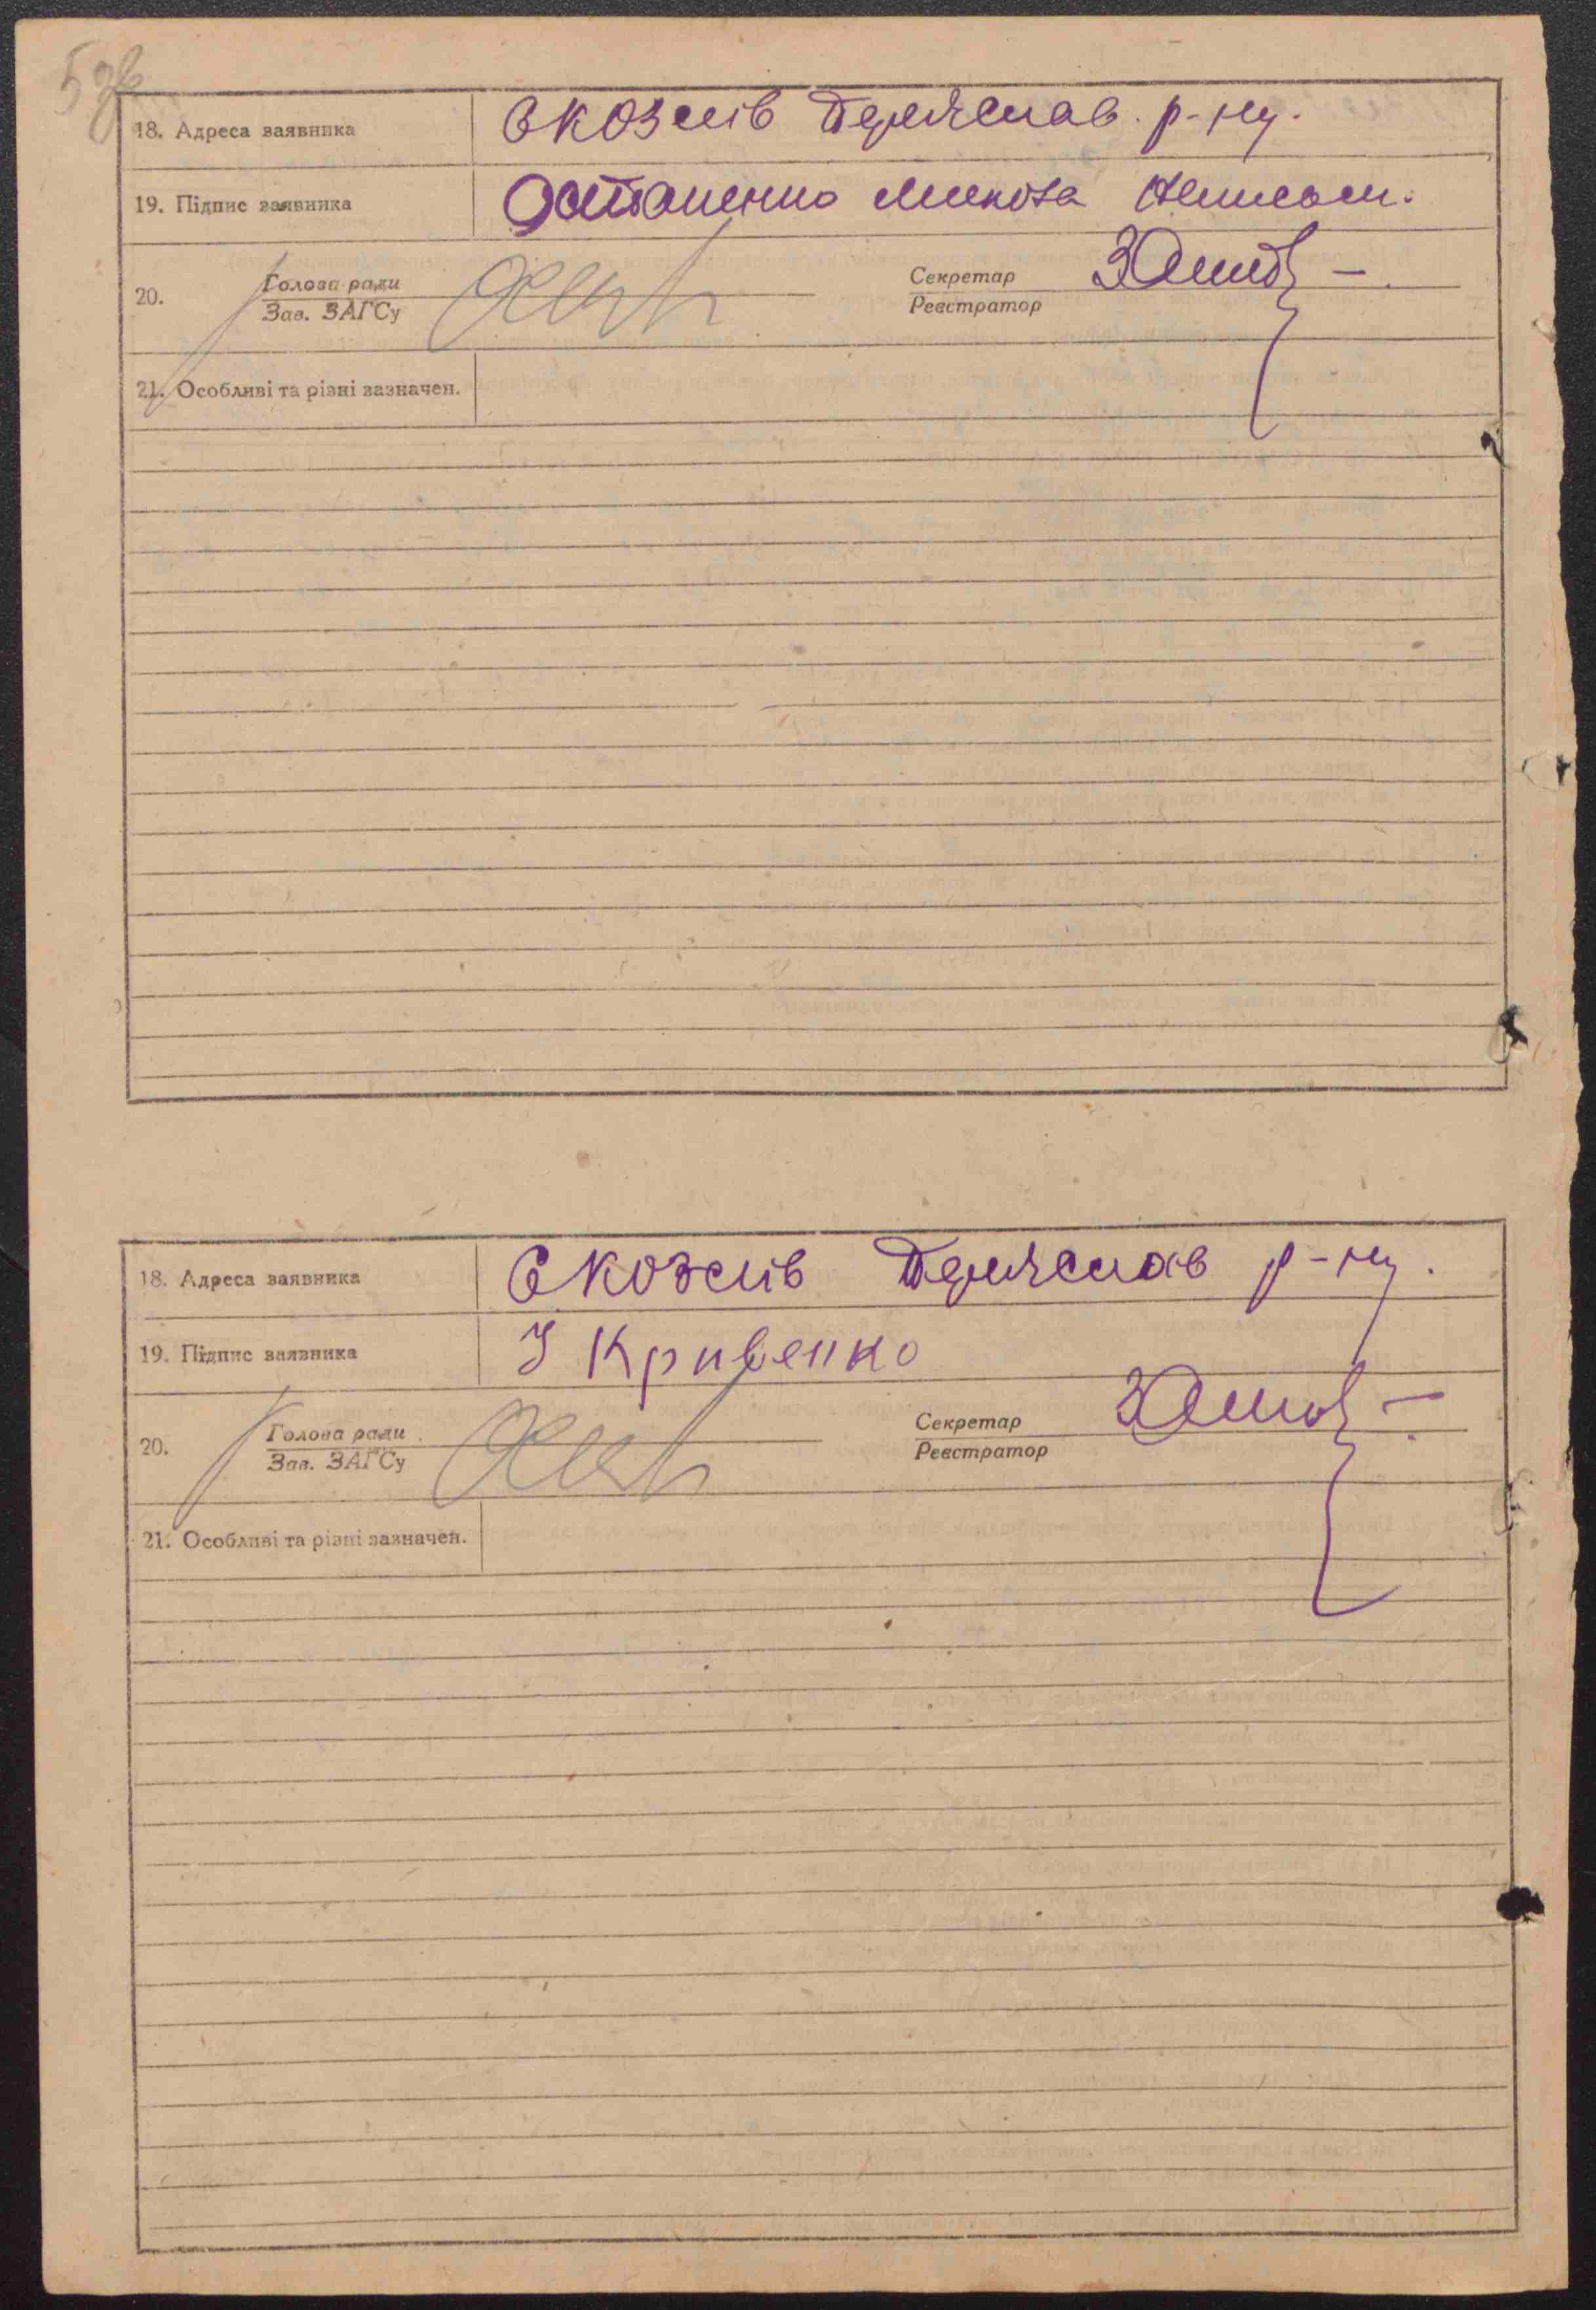 18. Адреса заявника с Козлів Переяслав. р-ну.
19. Підпис заявника Остапенко Микола
20. Голова ради Секретар
Зав. ЗАГСу Реєстратор
21. Особливі та різні зазначен.
18. Адреса заявника с Козлів Переяслав р-ну.
19. Підпис заявника У Кривенко
20. Голова ради Секретар
Зав. ЗАГСу Реєстратор
21. Особливі та різні зазначен.